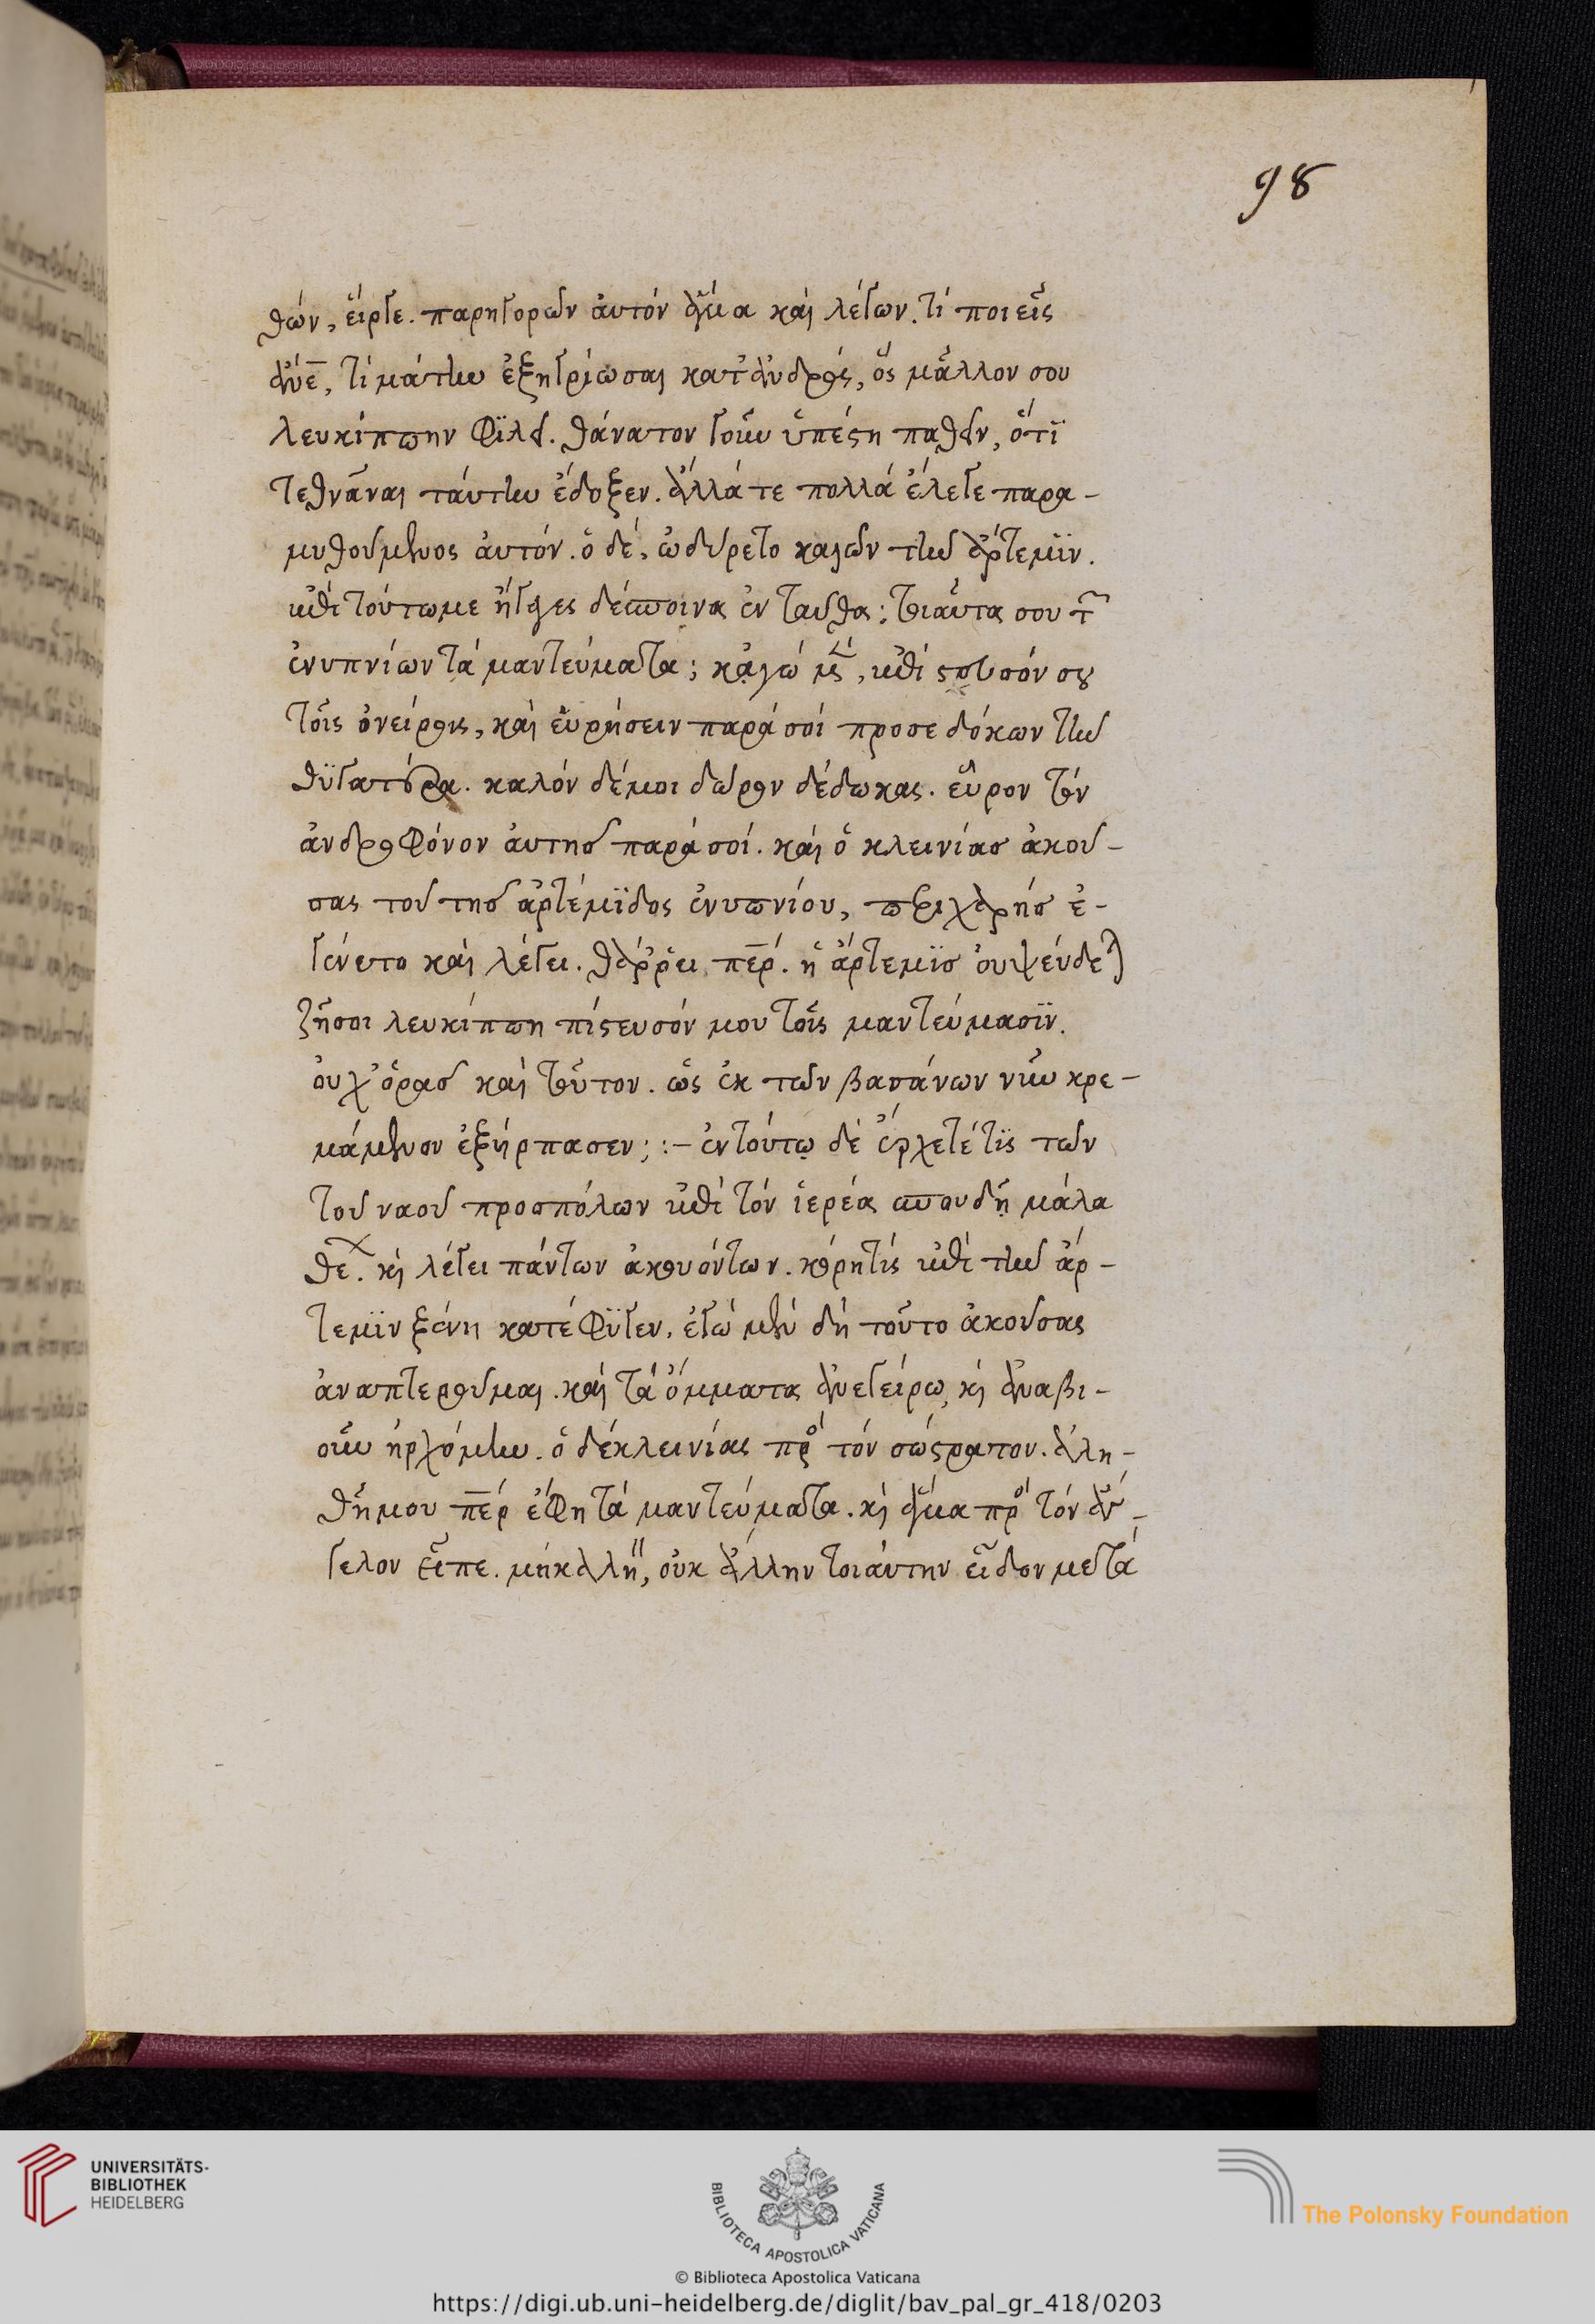 98
θών, εἶργε. παρηγορῶν ἀυτόν ἅμα καὶ λέγων. τί ποιεῖς
ἄνε̅, τί μάτην ἐξηγρίωσαι κατ' ἀνδρός, ὅς μᾶλλον σου
λευκίππην φϊλεῖ. θάνατον γοῦν ὑπέστη παθεῖν, ὅτϊ
τεθνᾶναι ταύτην ἔδοξεν. ἄλλά τε πολλά ἔλεγε παρα-
μυθούμενος ἀυτόν. ὁ δέ, ὠδύρετο καλῶν τὴν ἄρτεμϊν.
ἐπὶ τούτω με ἤγαγες δέσποινα ἐνταῦθα; τοιαῦτα σου τ῀
ἐνυπνίων τά μαντεύματα; κᾀγώ μ̅ὲ̅, ἐπί στευσόν σου
τοῖς ὀνείροις, καὶ ἑυρήσειν παρά σοί προσεδόκων τὴν
θϋγατέρα. καλόν δέ μοι δῶρον δέδωκας. εὗρον τόν
ἀνδροφόνον ἀυτῆσ παρά σοί. καὶ ὁ κλεινίασ ἀκού-
σας τοῦ τῆσ ἀρτέμϊδος ἐνυπνίου, περιχαρήσ ἐ-
γένετο καὶ λέγει. θάῤῥει περ̅́. ἡ ἄρτεμϊσ ὀυ ψεύδεται
ζῆ σοι λευκίππη πίστευσόν μου τοῖς μαντεύμασϊν.
ὀυχ' ὁρᾶσ καὶ τοῦτον. ὡς ἐκ τῶν βασάνων νῦν κρε-
μάμενον ἐξήρπασεν; :- ἐν τούτῳ δὲ ἔρχετέ τϊς τῶν
τοῦ ναοῦ προσπόλων ἐπί τόν ἱερέα σπουδῇ μάλα
θε. κὶ λέγει πάντων ἀκουόντων. κόρη τίς ἐπὶ τὴν ἄρ-
τεμϊν ξένη κατέφϋγεν. ἐγώ μὲν δή τοῦτο ἀκούσας
ἀναπτεροῦμαι. καὶ τά ὄμματα ἀνεγείρω, κὶ ἀναβι-
οῦν ἠρχόμην. ὁ δέ κλεινίας πρ̀ὸς τόν σώστρατον. ἀλη-
θῆ μου περ̅́ ἔφη τά μαντεύματα. κὶ ἅμα πρὸ τόν ἄγ-
γελον εἶπε. μή καλή, οὐκ ἄλλην τοιάυτην εἶδον μετά
UNIVERSITÄTS-
BIBLIOTHEK
HEIDELBERG
BIBLIOTECA APOSTOLICA VATICANA
The Polonsky Foundation
© Biblioteca Apostolica Vaticana
https://digi.ub.uni-heidelberg.de/diglit/bav_pal_gr_418/0203